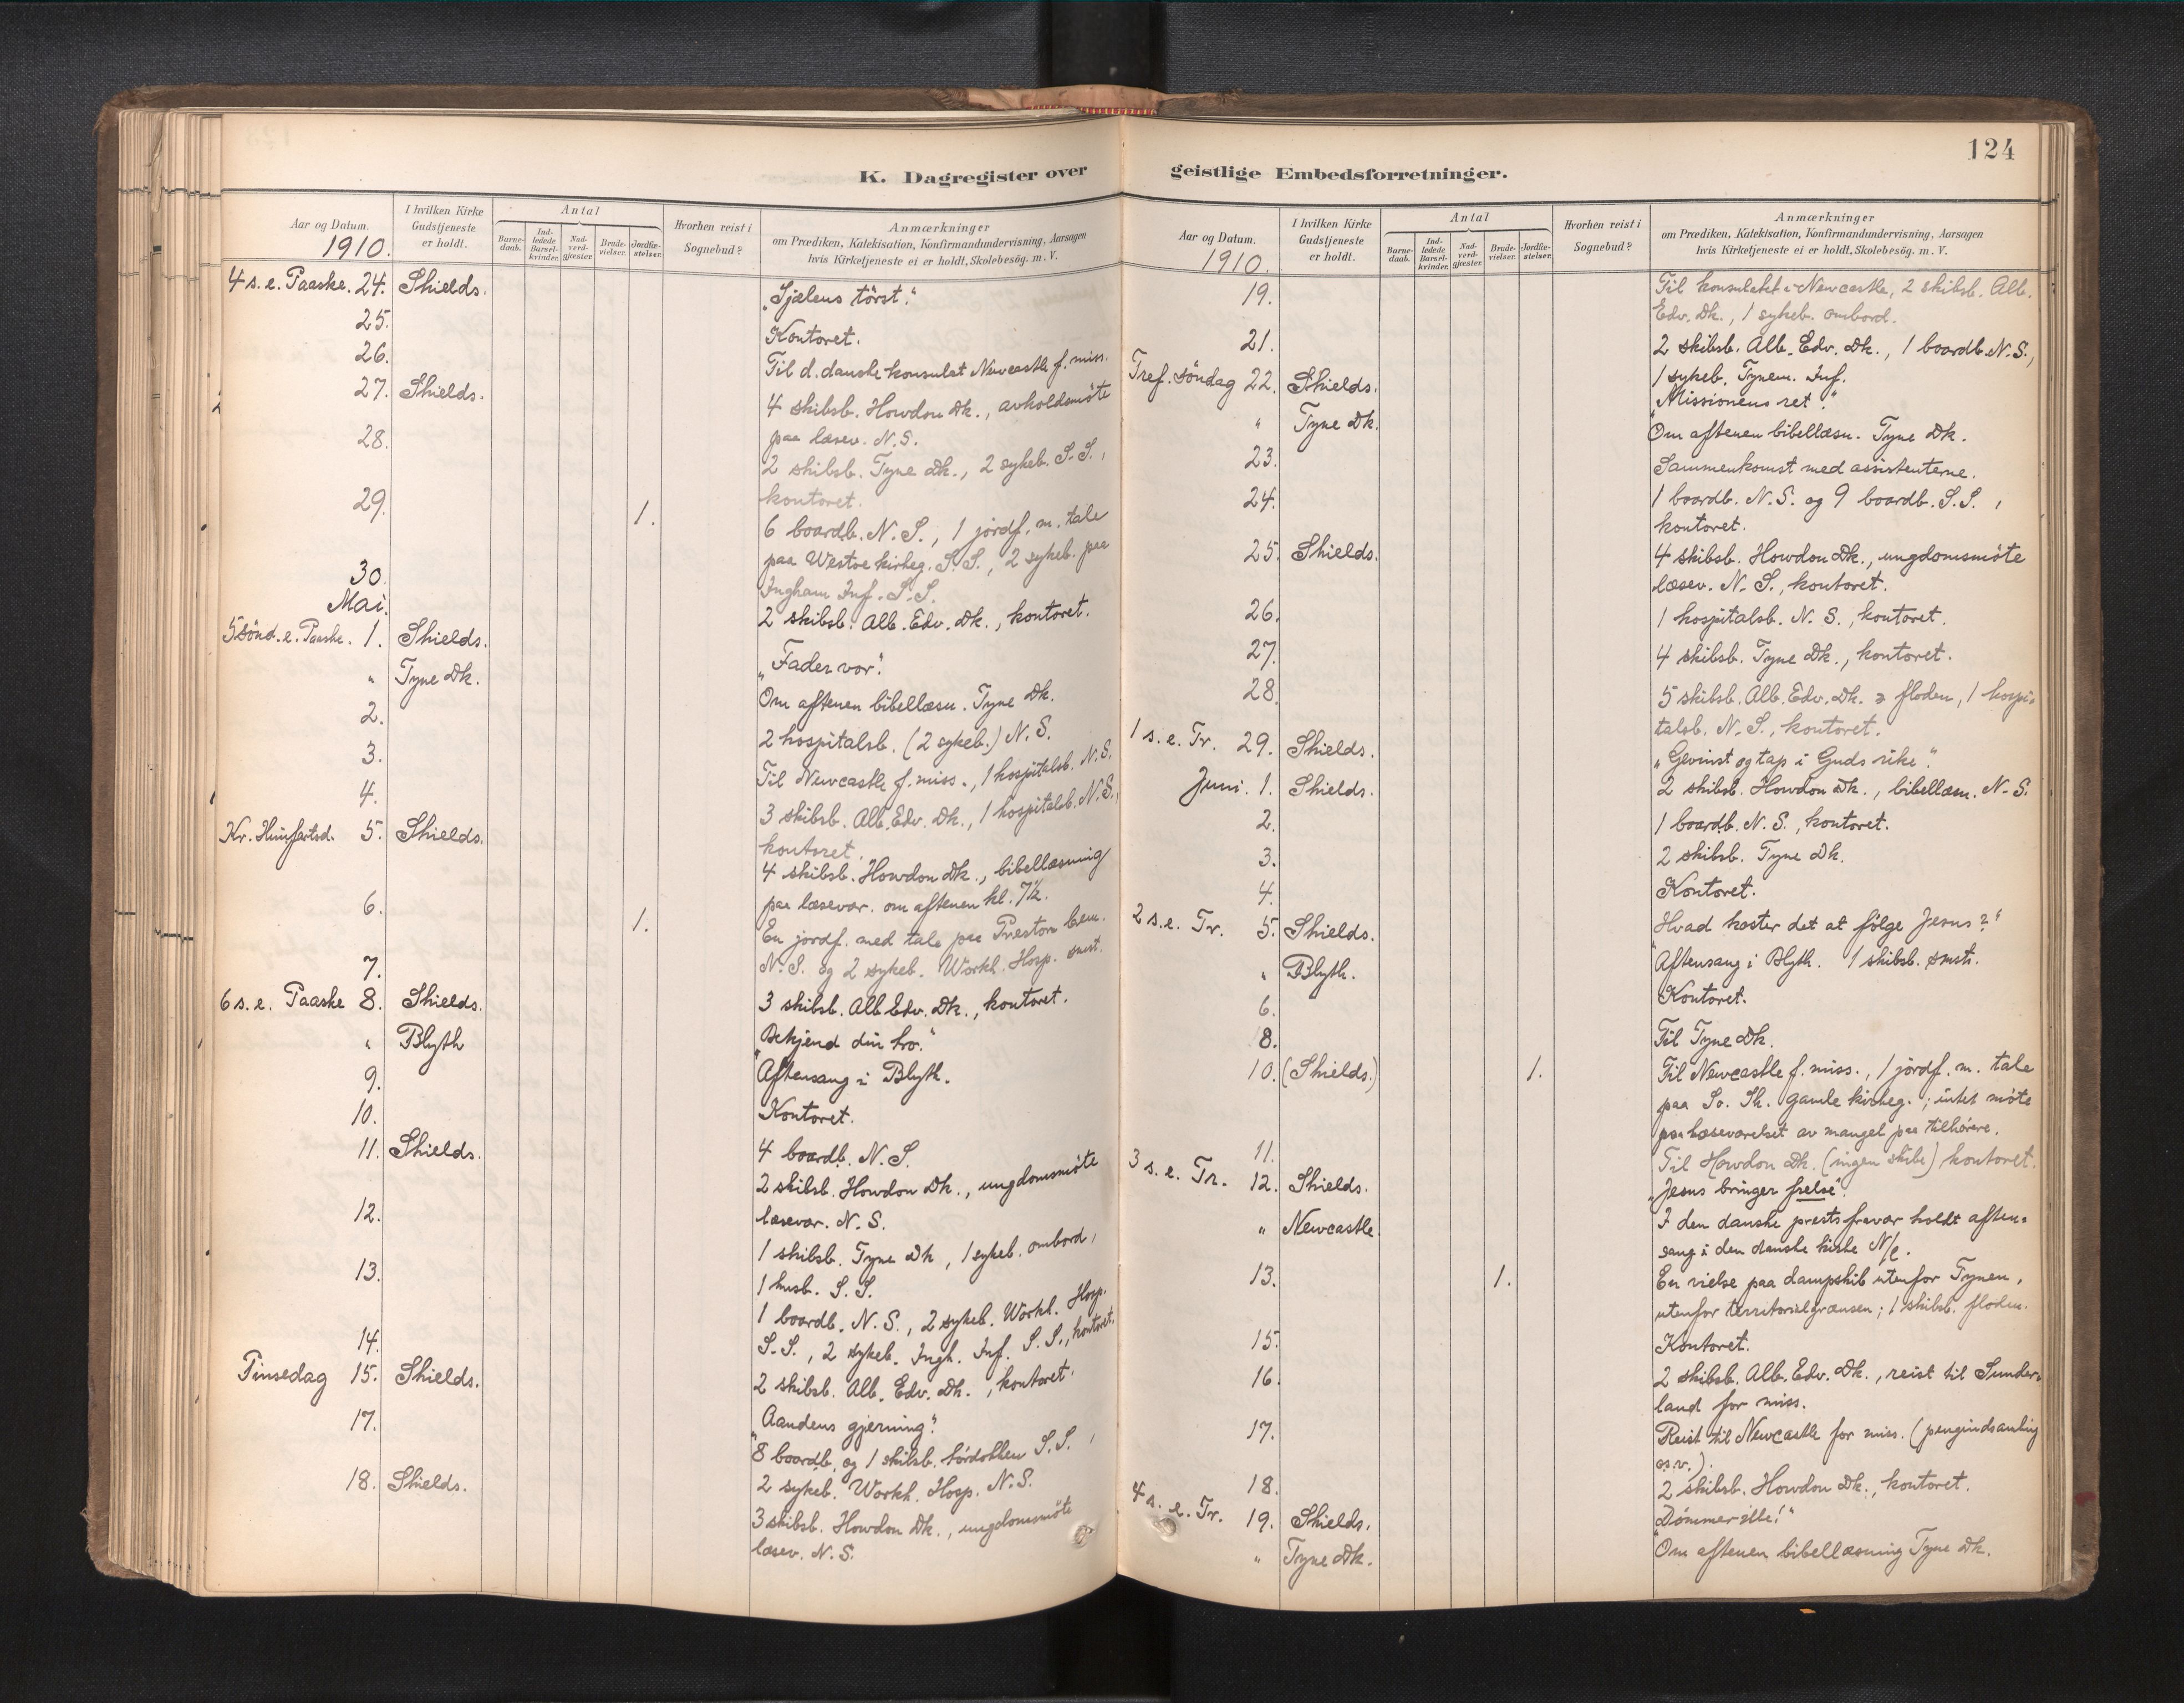 124
K. Dagregister over geistlige Embedsforretninger.
Aar og Datum. 1910.
I hvilken Kirke Gudstjeneste er holdt.
Antal
Barnedaab.
Indledede Barselkvinder.
Nadverdgjæster.
Brudevielser.
Jordfæstelser.
Hvorhen reist i Sognebud?
Anmærkninger
om Prædiken, Katekisation, Konfirmandundervisning, Aarsagen
hvis Kirketjeneste ei er holdt, Skolebesög. m. V.
4 s. e. Paaske. 24. Shields. „Sjælens törst."
25. Kontoret.
26. Til d. danske konsulat Newcastle f. miss.
27. Shields. 4 skibsb. Howdon Dk., avholdsmöte
paa læsev. N.S.
28. 2 skibsb. Tyne Dk., 2 sykeb. S.S.,
kontoret.
29. 1. 6 boardb. N.S., 1 jordf. m. tale
paa Westoe kirkeg. S.S., 2 sykeb. paa
Ingham Inf. S.S.
30. 2 skibsb. Alb. Edv. Dk., kontoret.
Mai.
5 sönd. e. Paaske. 1. Shields. „Fader vor".
" Tyne Dk. Om aftenen bibellæsn. Tyne Dk.
2. 2 hospitalsb. (2 sykeb.) N.S.
3. Til Newcastle f. miss., 1 hospitalsb. N.S.
4. 3 skibsb. Alb. Edv. Dk., 1 hospitalsb. N.S.,
kontoret.
Kr. Himfartsd. 5. Shields. 4 skibsb. Howdon Dk., bibellæsning
paa læsevær. om aftenen kl. 7½.
6. 1. En jordf. med tale paa Preston Cem.
N.S. og 2 sykeb. Workh. Hosp. smst.
7. 3 skibsb. Alb Edv. Dk., kontoret.
6 s. e. Paaske 8. Shields. „Bekjend din tro."
" Blyth Aftensang i Blyth.
9. Kontoret.
10. 4 boardb. N.S.
11. Shields. 2 skibsb. Howdon Dk., ungdomsmöte
læsevær. N.S.
12. 1 skibsb. Tyne Dk, 1 sykeb. ombord,
1 husb. S.S.
13. 1 boardb. N.S., 2 sykeb. Workh. Hosp.
S.S., 2 sykeb. Ingh. Inf. S.S., kontoret.
14. 2 skibsb. Alb. Edv. Dk., kontoret.
Pinsedag 15. Shields. „Aandens gjerning".
17. 8 boardb. og 1 skibsb. tördokken S.S.,
2 sykeb. Workh. Hosp. N.S.
18. Shields. 3 skibsb. Howdon Dk., ungdomsmöte
læsev. N.S.
Aar og Datum. 1910.
I hvilken Kirke Gudstjeneste er holdt.
Antal
Barnedaab.
Indledede Barselkvinder.
Nadverdgjæster.
Brudevielser.
Jordfæstelser.
Hvorhen reist i Sognebud?
Anmærkninger
om Prædiken, Katekisation, Konfirmandundervisning, Aarsagen
hvis Kirketjeneste ei er holdt, Skolebesög. m. V.
19. Til konsulatet i Newcastle, 2 skibsb. Alb.
Edv. Dk., 1 sykeb. ombord.
21. 2 skibsb. Alb. Edv. Dk., 1 boardb. N.S.,
1 sykeb. Tynem. Inf.
Tref. söndag 22. Shields. „Missionens ret."
" Tyne Dk. Om aftenen bibellæsn. Tyne Dk.
23. Sammenkomst med assistenterne.
24. 1 boardb. N.S. og 9 boardb. S.S.,
kontoret.
25. Shields. 4 skibsb. Howdon Dk., ungdomsmöte
læsev. N.S., kontoret.
26. 1 hospitalsb. N.S., kontoret.
27. 4 skibsb. Tyne Dk., kontoret.
28. 5 skibsb. Alb. Edv. Dk. & floden, 1 hospi-
talsb. N.S., kontoret.
1 s. e. Tr. 29. Shields. „Gevinst og tap i Guds rike".
Juni. 1. Shields. 2 skibsb. Howdon Dk., bibellæsn. N.S.
2. 1 boardb. N.S., kontoret.
3. 2 skibsb. Tyne Dk.
4. Kontoret.
2 s. e. Tr. 5. Shields. „Hvad koster det at fölge Jesus?"
" Blyth. Aftensang i Blyth. 1 skibsb. smst.
6. Kontoret.
8. Til Tyne Dk.
10. (Shields.) 1. Til Newcastle f. miss., 1 jordf. m. tale
paa So. Sh. gamle kirkeg.; intet möte
paa læseværelset av mangel paa tilhörere.
11. Til Howdon Dk. (ingen skibe) kontoret.
3 s. e. Tr. 12. Shields. „Jesus bringer frelse".
" Newcastle I den danske prests fravær holdt aften-
sang i den danske kirke N/c.
13. 1. En vielse paa dampskib utenfor Tynen,
utenfor territorialgrænsen; 1 skibsb. floden.
15. Kontoret.
16. 2 skibsb. Alb. Edv. Dk., reist til Sunder-
land for miss.
17. Reist til Newcastle for miss. (pengindsamling
osv.).
18. 2 skibsb. Howdon Dk., kontoret.
4 s. e. Tr. 19. Shields. „Dömmer ikke!"
" Tyne Dk. Om aftenen bibellæsning Tyne Dk.